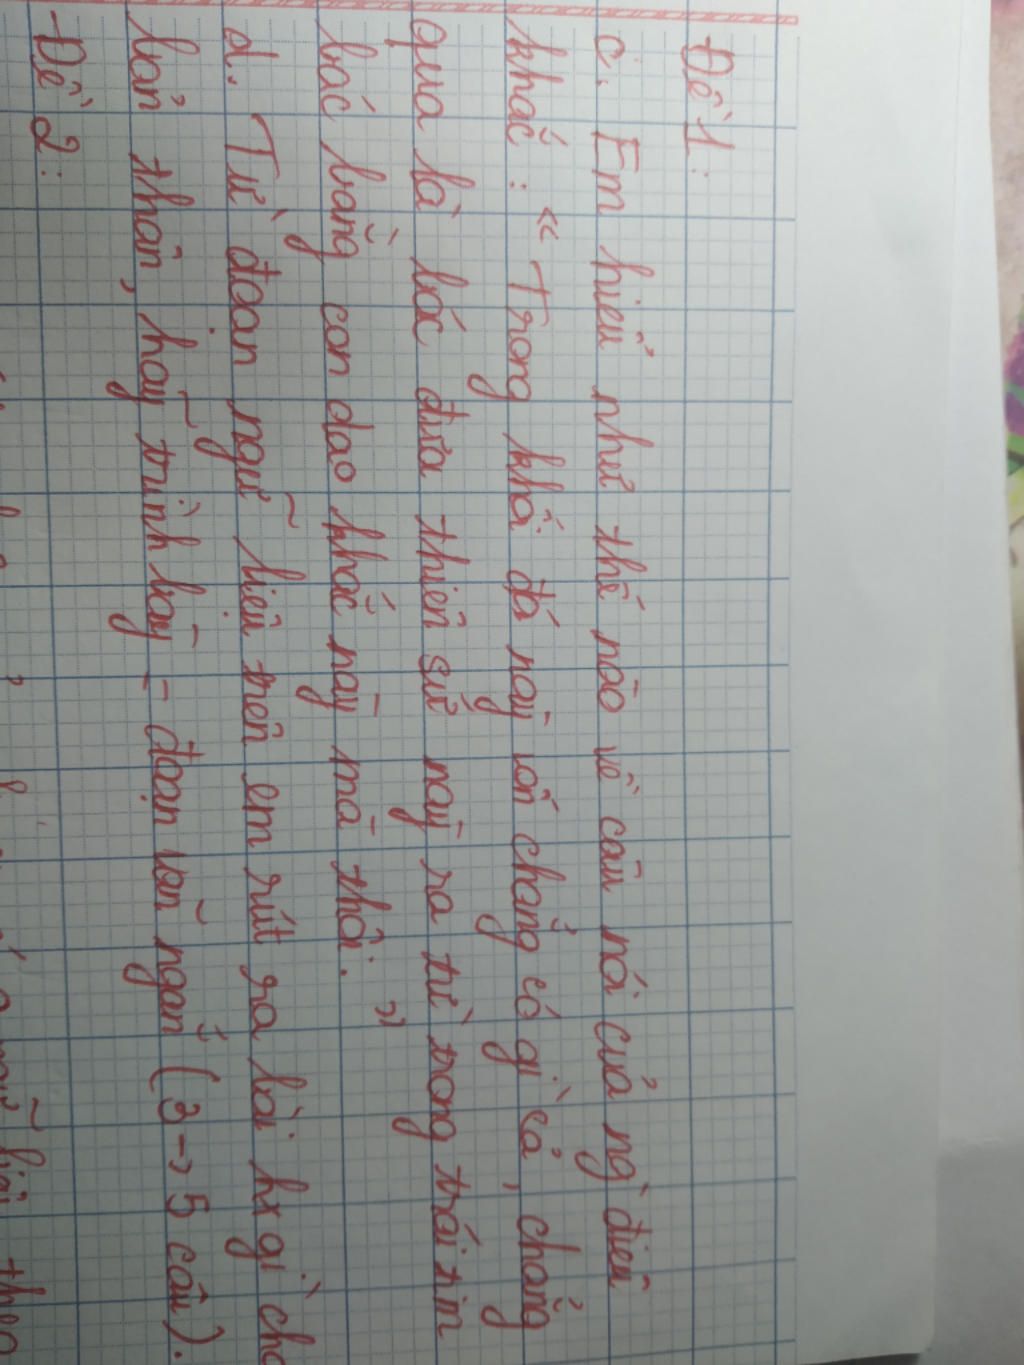 Đề 1:
c. Em hiểu như thế nào về câu nói của ng` điêu
khắc: " Trong khối đá này vốn chẳng có gì cả, chẳng
qua là bác đưa thiên sứ này ra từ trong trái tim
bác bằng con dao khắc này mà thôi. "
d. Từ đoạn ngữ liệu trên em rút ra bài hx gì cho
bản thân, hãy trình bày = đoạn văn ngắn (3 -> 5 câu).
- Đề 2: